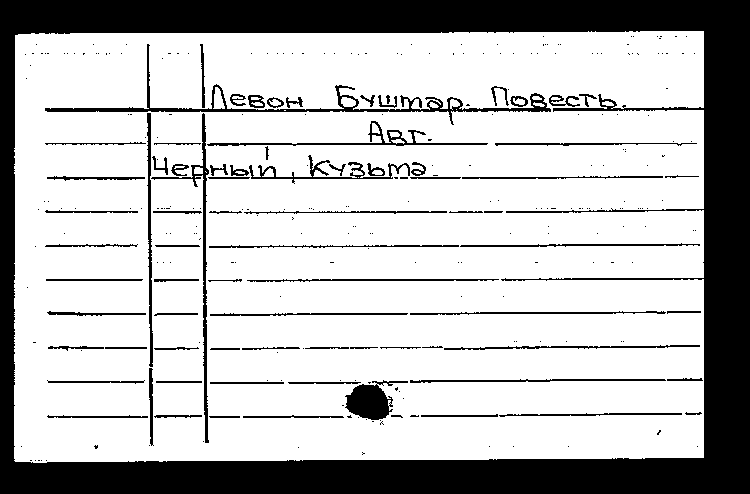 Левон Буштар. Повесть.
Авт.
Черный, Кузьма.